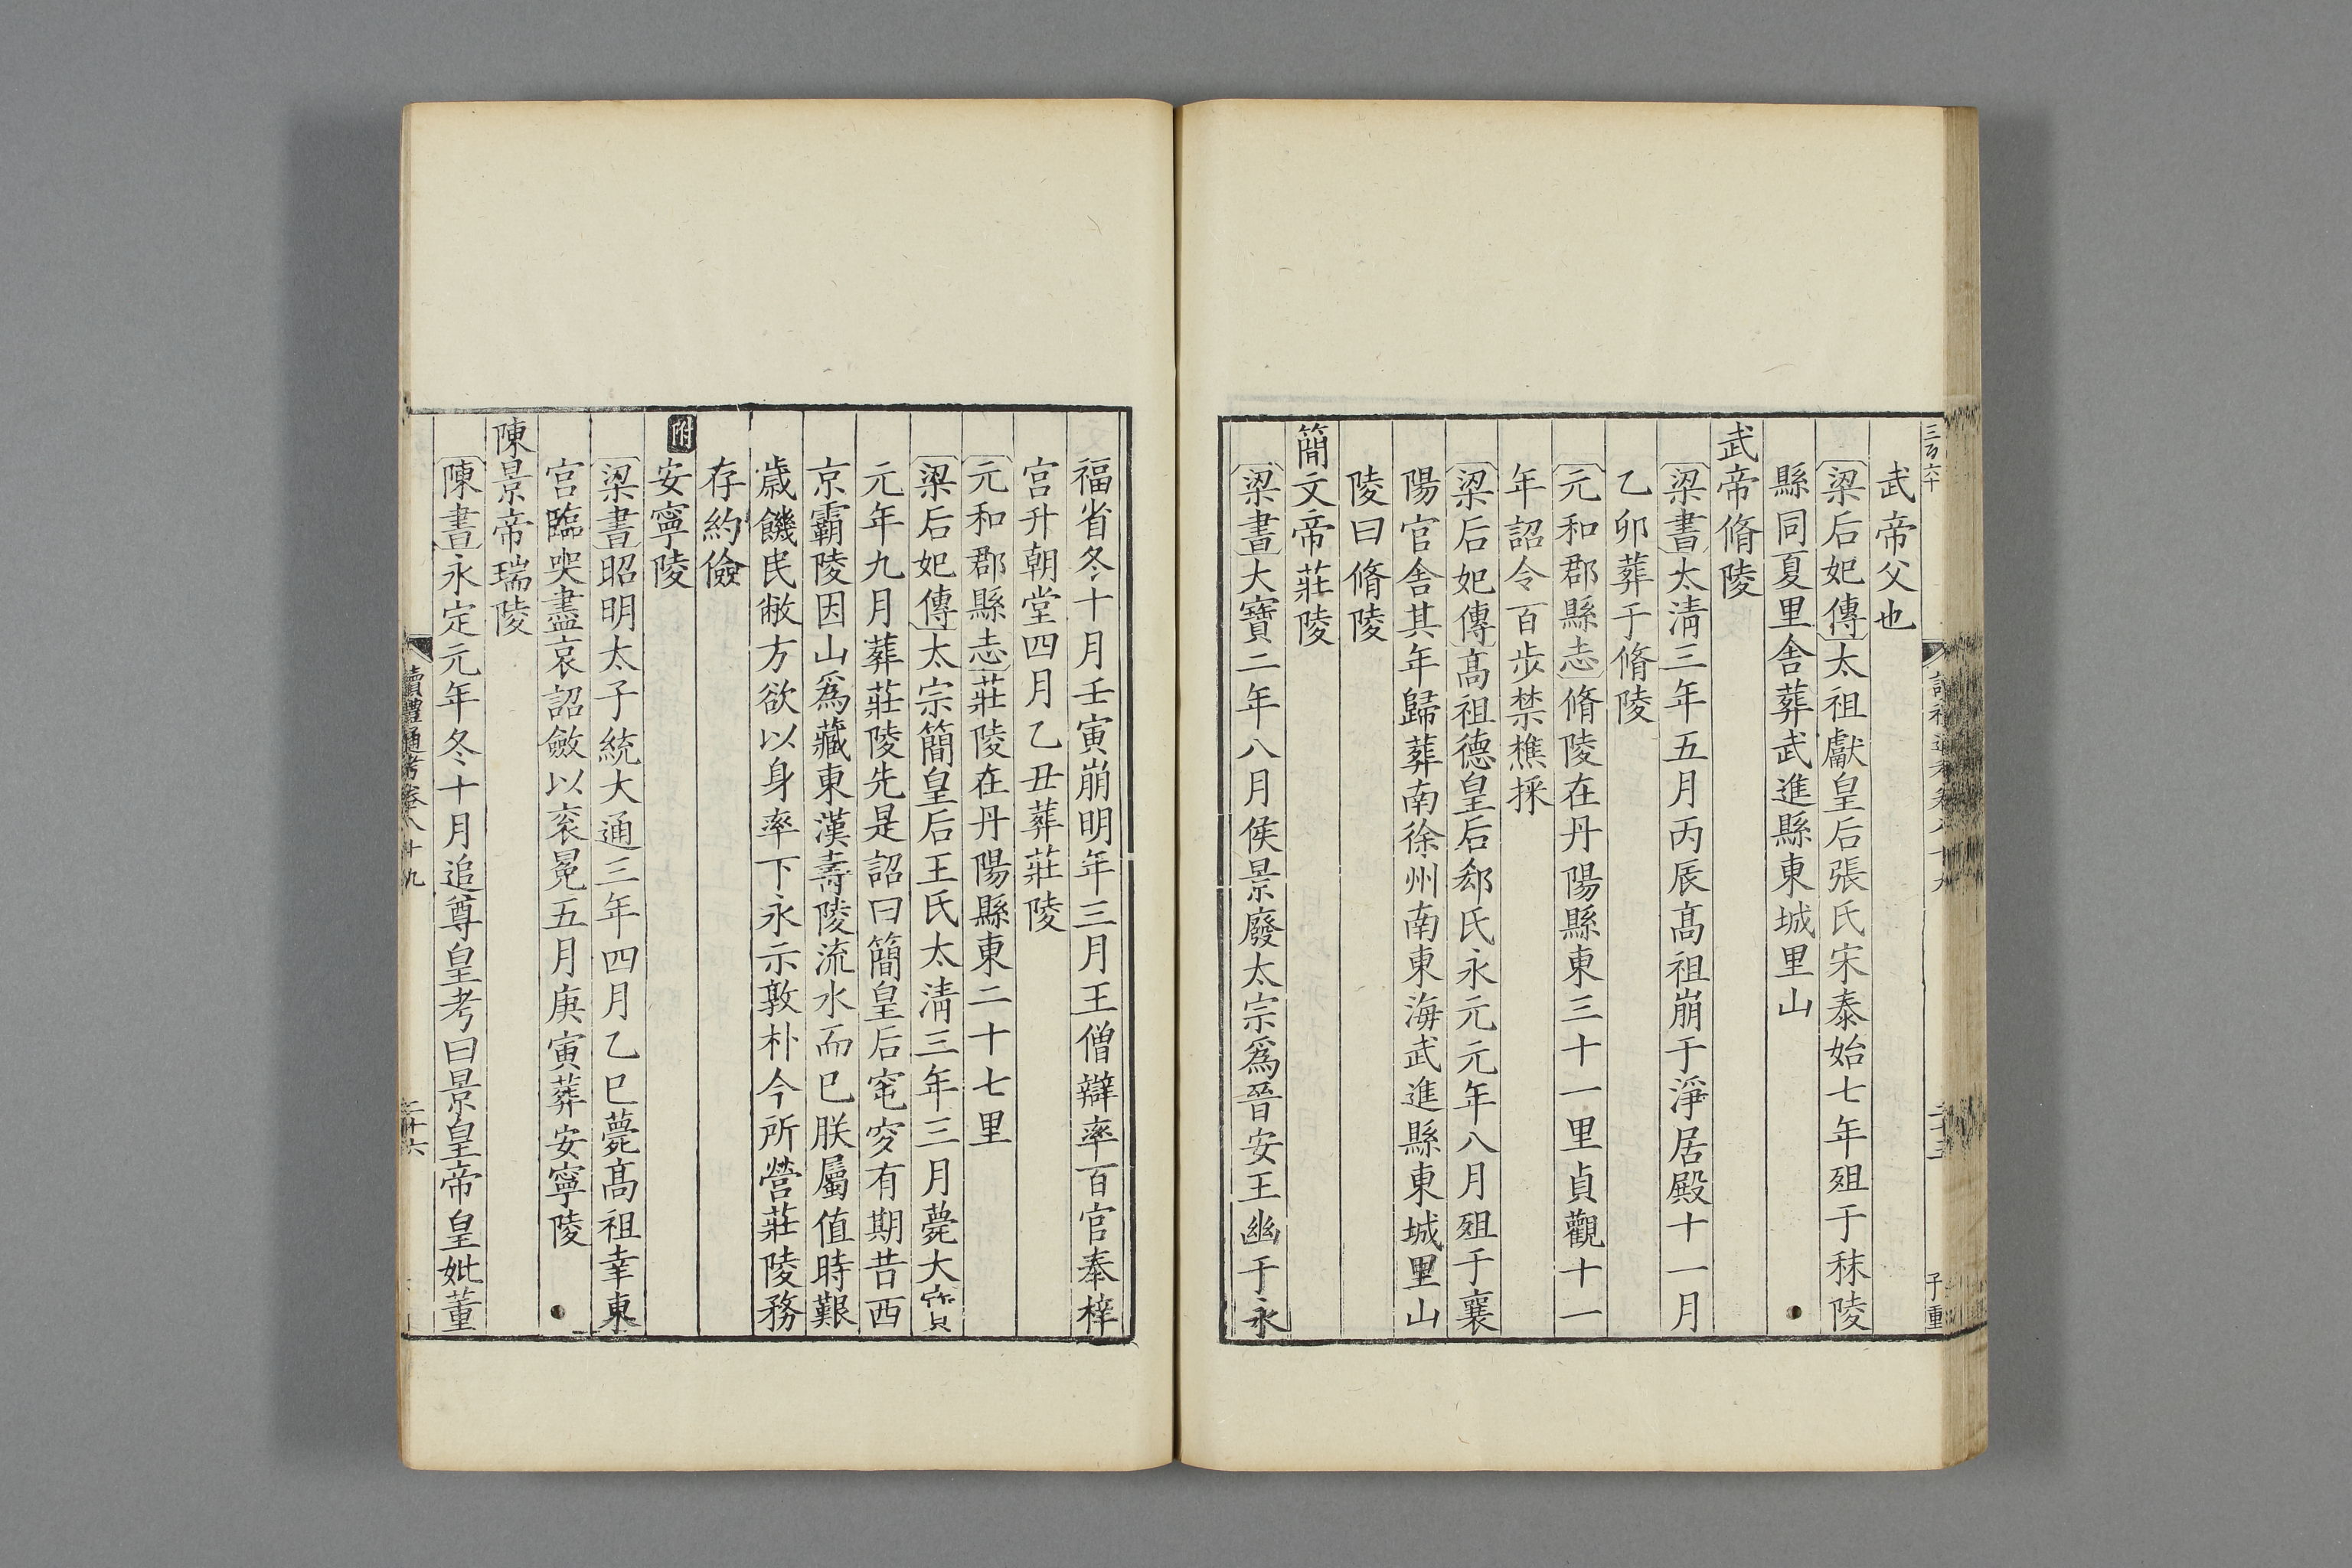 武帝父也
梁后妃傳太祖獻皇后張氏宋泰始七年殂于秣陵
縣同夏里舍葬武進縣東城里山
武帝脩陵
梁書太淸三年五月丙辰髙祖崩于淨居殿十一月
乙卯葬于脩陵
元和郡縣志脩陵在丹陽縣東三十一里貞觀十一
年詔令百歩禁樵採
梁后妃傳髙祖德皇后郗氏永元元年八月殂于襄
陽官舍其年歸葬南徐州南東海武進縣東城里山
陵曰脩陵
簡文帝莊陵
梁書大寶二年八月侯景廢太宗爲晉安王幽于永
福省冬十月壬寅崩明年三月王僧辯率百官奉梓
宮升朝堂四月乙丑葬莊陵
元和郡縣志莊陵在丹陽縣東二十七里
梁后妃傳太宗簡皇后王氏太淸三年三月薨大寳
元年九月葬莊陵先是詔曰簡皇后窀穸有期昔西
京霸陵因山爲藏東漢壽陵流水而已朕屬值時艱
歳饑民敝方欲以身率下永示敦朴今所營莊陵務
存約儉
附安寧陵
梁書昭明太子統大通三年四月乙巳薨髙祖幸東
宮臨哭盡哀詔斂以衮冕五月庚寅葬安寧陵
陳景帝瑞陵
陳書永定元年冬十月追尊皇考曰景皇帝皇妣董
讀禮通考卷八十九
二十六